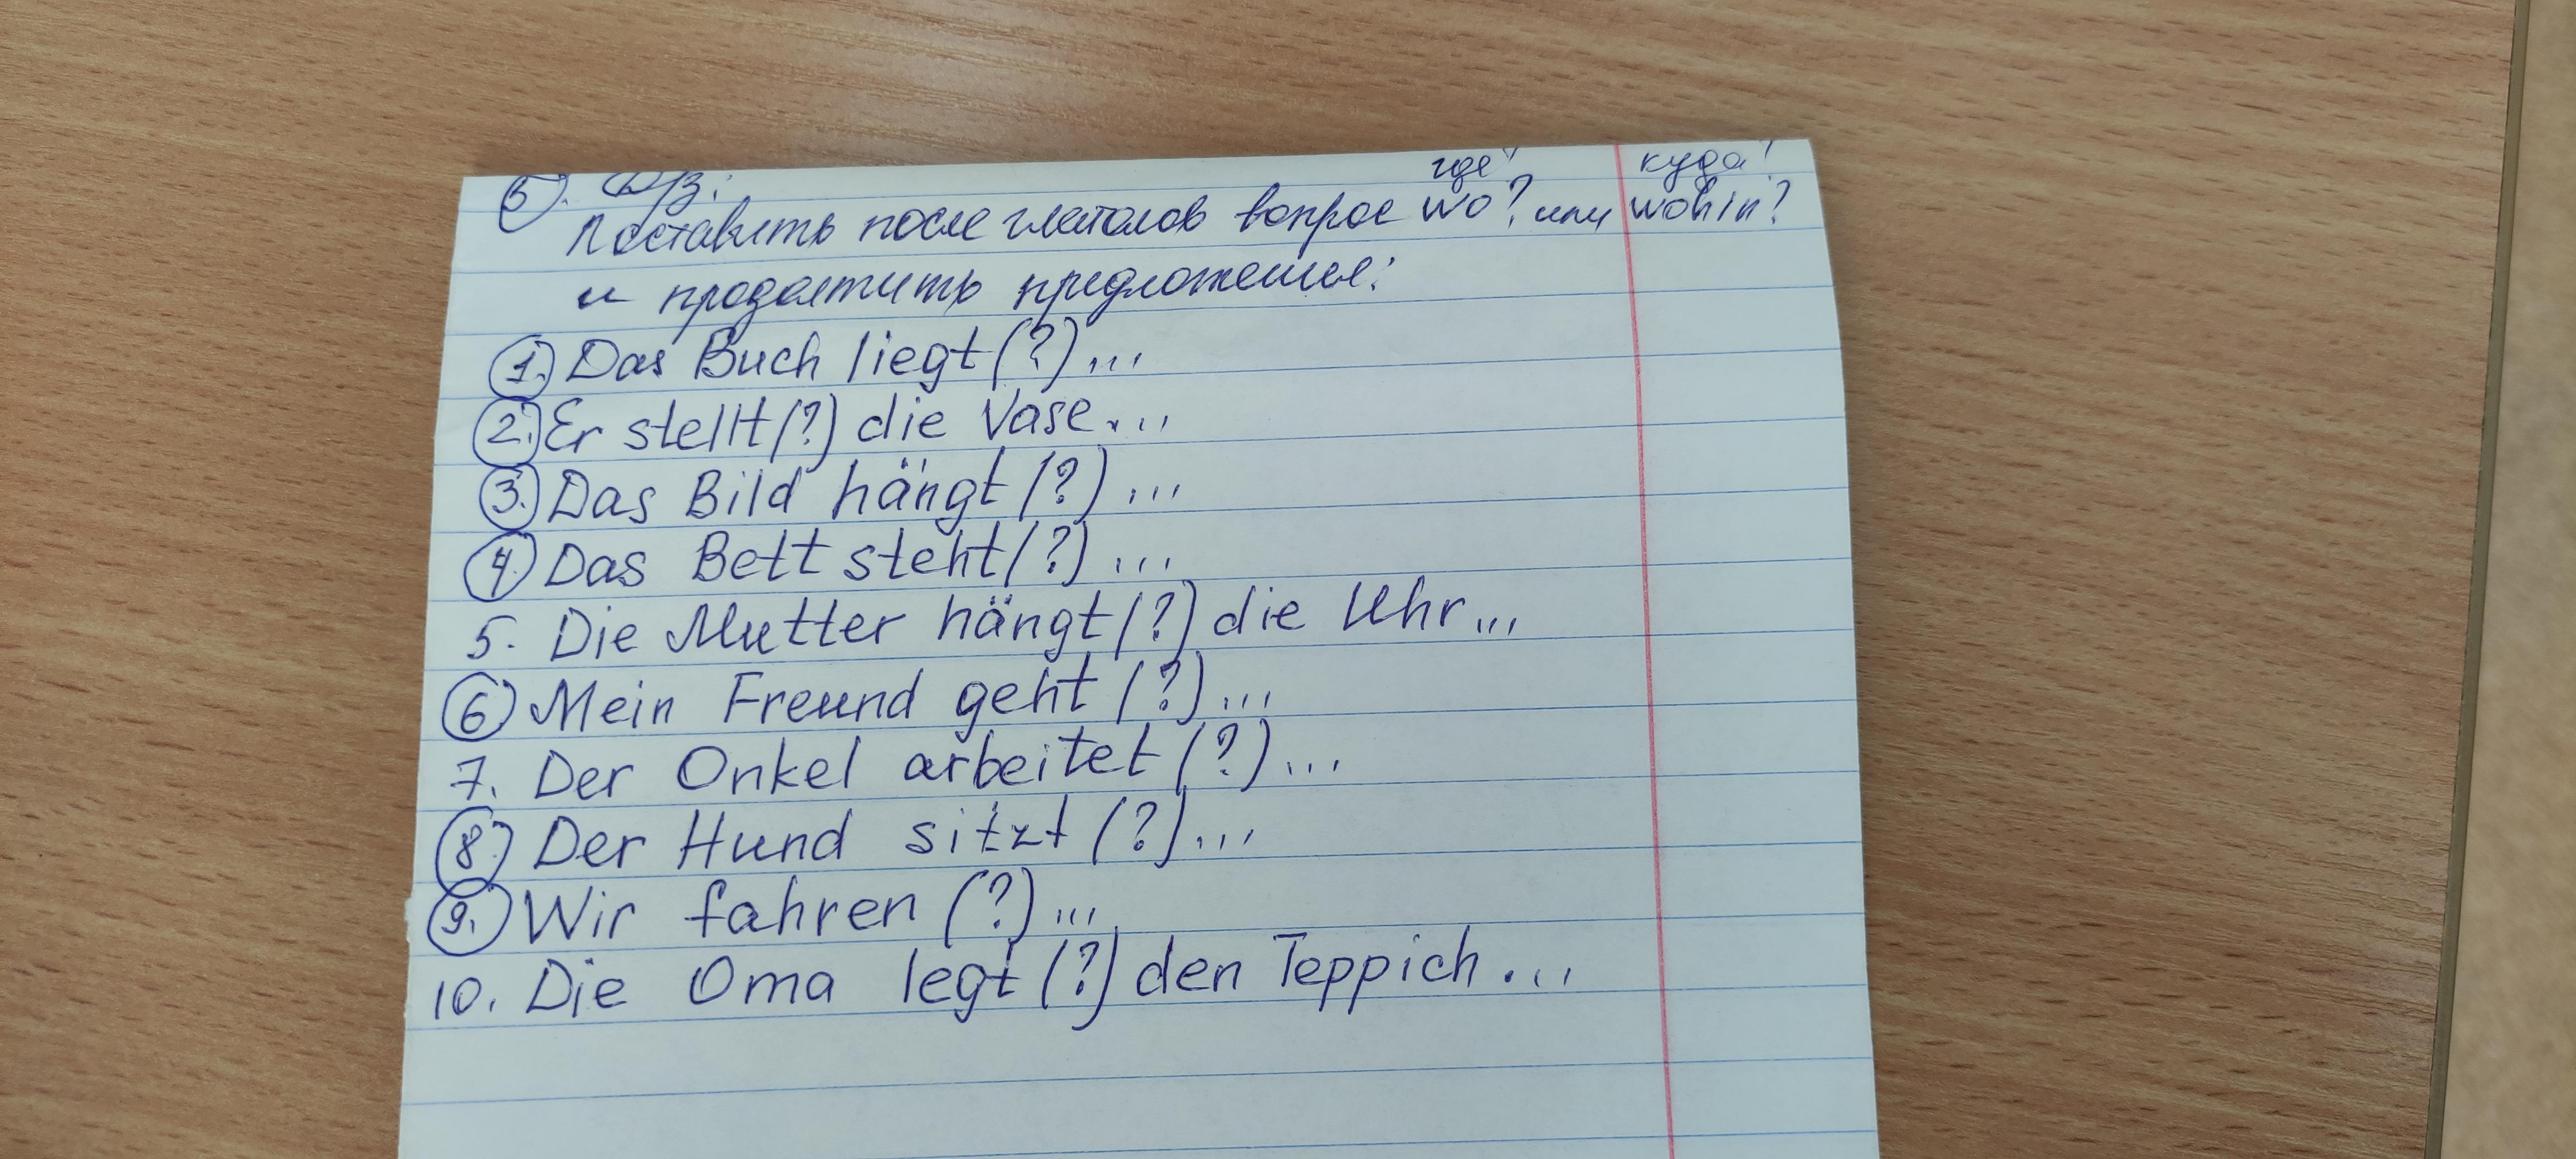 5). Д/з: где? куда?
Поставить после глаголов вопрос wo? или wohin?
и продолжить предложение:
1. Das Buch liegt (?)...
2. Er stellt (?) die Vase...
3. Das Bild hängt (?)...
4. Das Bett steht (?)...
5. Die Mutter hängt (?) die Uhr...
6. Mein Freund geht (?)...
7. Der Onkel arbeitet (?)...
8. Der Hund sitzt (?)...
9. Wir fahren (?)...
10. Die Oma legt (?) den Teppich...